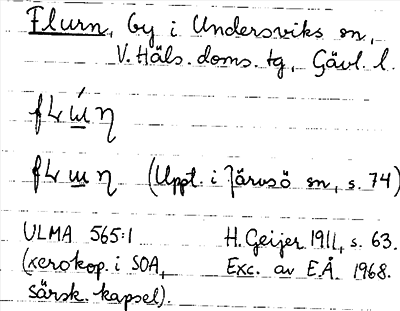 Flurn, by i Undersviks sn,
V. Häls. doms. tg, Gävl. l.
(Uppt. i Järvsö sn, s. 74)
ULMA 565:1 H. Geijer 1911, s. 63.
(xerokop. i SOA, Exc. av E.Å. 1968.
särsk. kapsel).